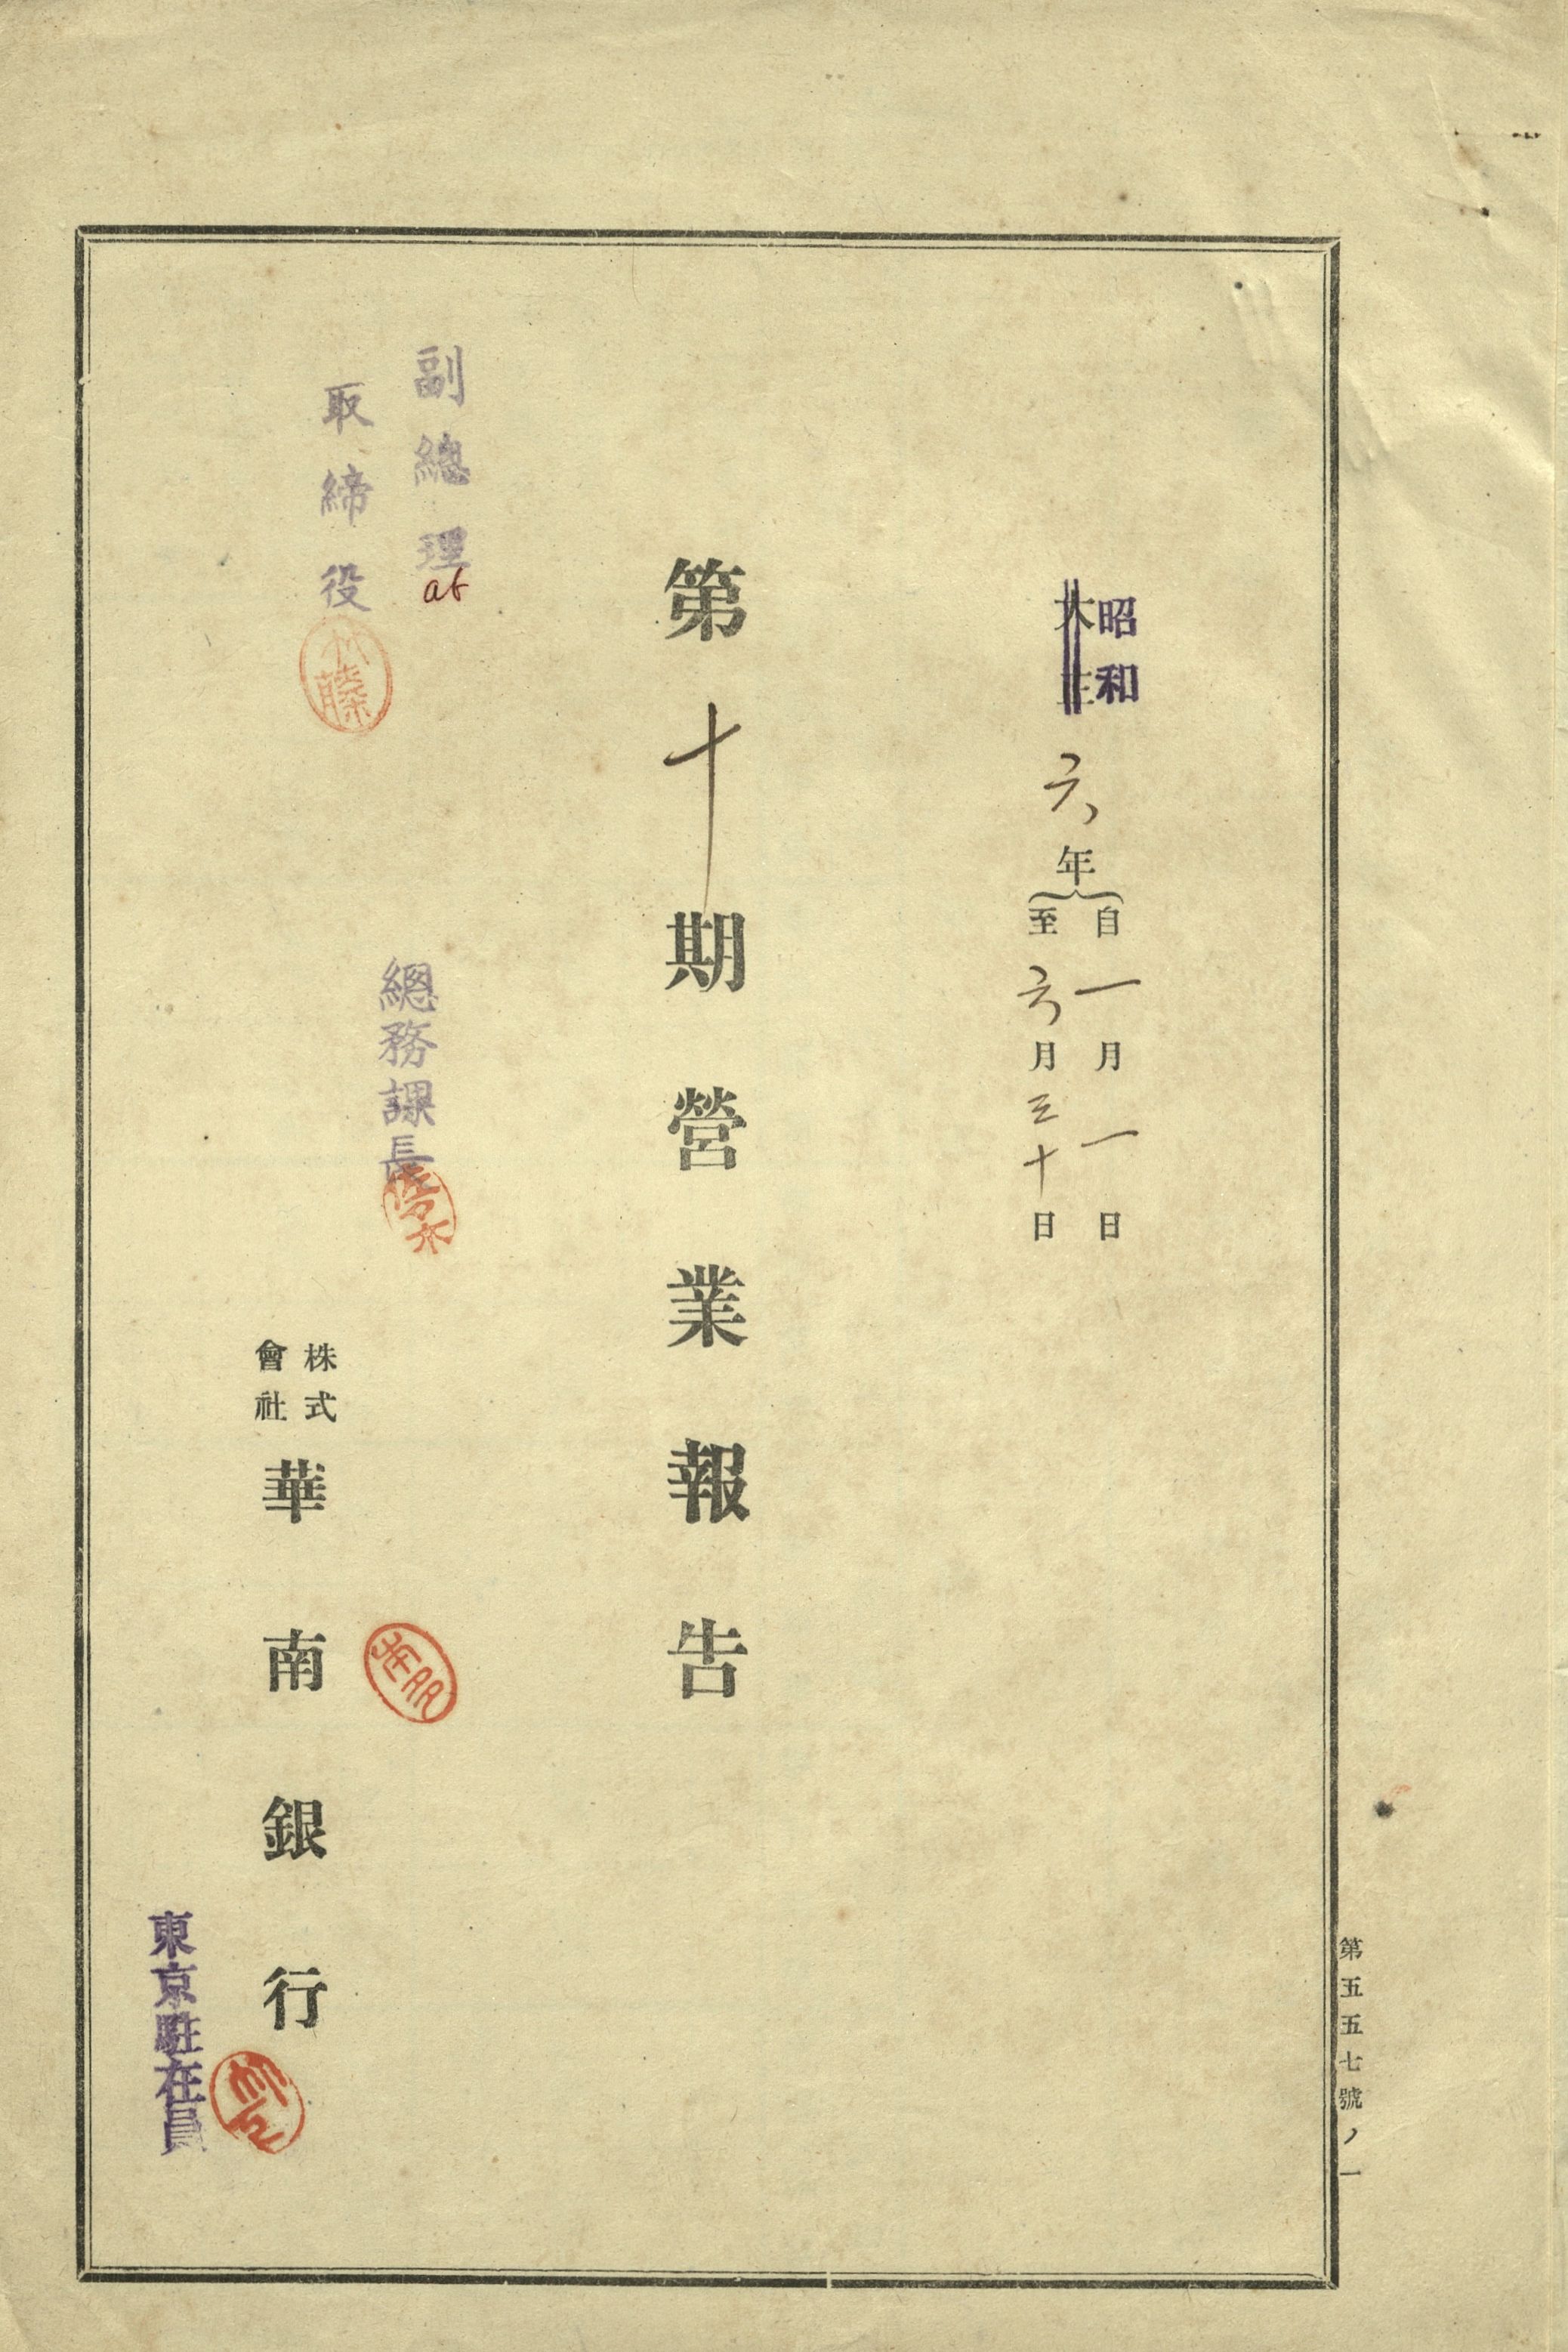 昭和
大正
六年
自一月一日
至六月三十日
第十期營業報告
副總理
at
取締役
總務課長
株式會社華南銀行
東京駐在員
第五五七號ノ一